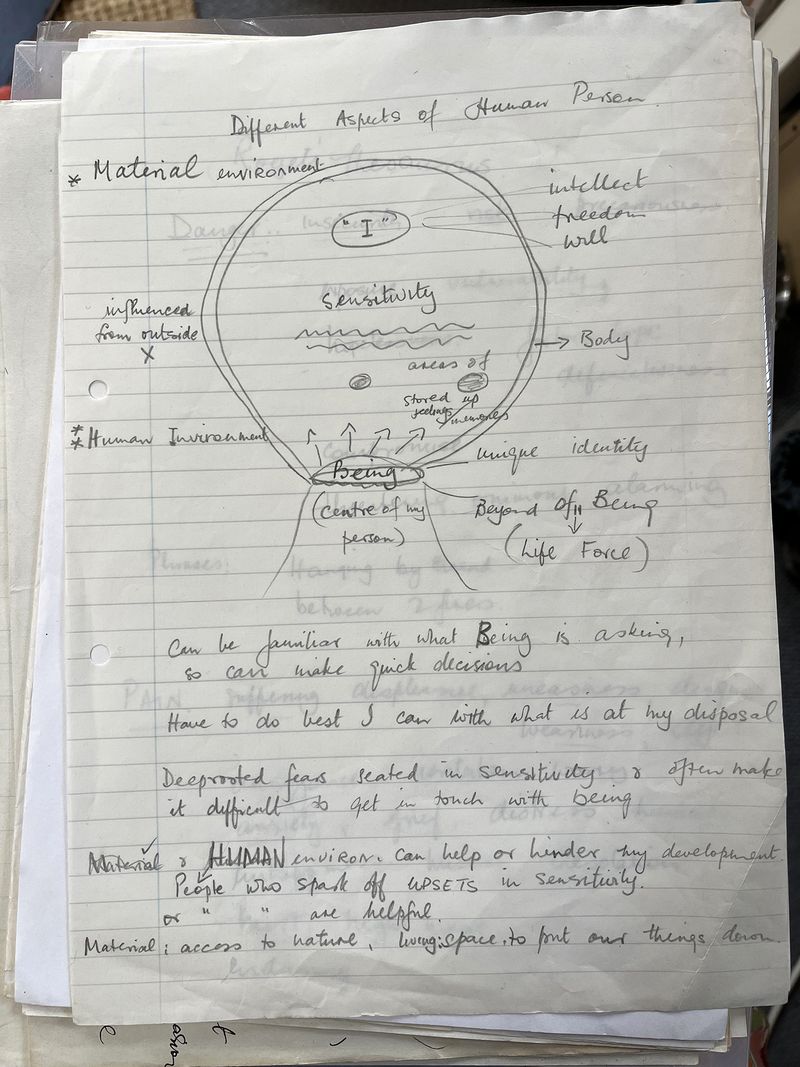 Different Aspects of Human Person
* Material environment
"I"
intellect
freedom
will
sensitivity
influenced
from outside
X
→ Body
areas of
stored up
feelings
memories
* * Human Invironment
Being
unique identity
(centre of my
person)
Beyond Of Being
(Life Force)
Can be familiar with what Being is asking,
so can make quick decisions
Have to do best I can with what is at my disposal
Deeprooted fears seated in sensitivity & often make
it difficult to get in touch with being
Material & HUMAN environ. can help or hinder my development.
People who spark off UPSETS in sensitivity.
or " " are helpful.
Material: access to nature, living space, to put our things down.